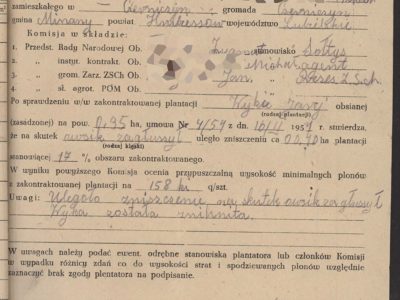 zamieszkałego w Czernięcin gromada Czernięcin
gmina powiat województwo Lubelskie
Komisja w składzie:
1. Przedst. Rady Narodowej Ob. Zygmunt stanowisko Sołtys
2. „ instyt. kontrakt. Ob. Michał agent
3. „ grom. Zarz. ZSCh Ob. Jan, Prezes Z.S.ch.
4. „ sł. agrot. POM Ob.
Po sprawdzeniu w/w zakontraktowanej plantacji Wyka jarej obsianej
(rodzaj plantacji)
(zasadzonej) na pow. 0,95 ha, umowa Nr 4/59 z dn. stwierdza,
że na skutek owsik zagłuszył uległo zniszczeniu ca ha plantacji
(rodzaj klęski)
stanowiącej 17 % obszaru zakontraktowanego.
W wyniku powyższego Komisja ocenia przypuszczalną wysokość minimalnych plonów
z zakontraktowanej plantacji na 158 q/szt.
Uwagi: Uległa zniszczenie na skutek owsik zagłuszył
Wyka została
W uwagach należy podać ewent. odrębne stanowiska plantatora lub członków Komisji
w wypadku różnicy zdań co do wysokości strat i spodziewanych plonów względnie
zaznaczyć brak zgody plantatora na podpisanie.